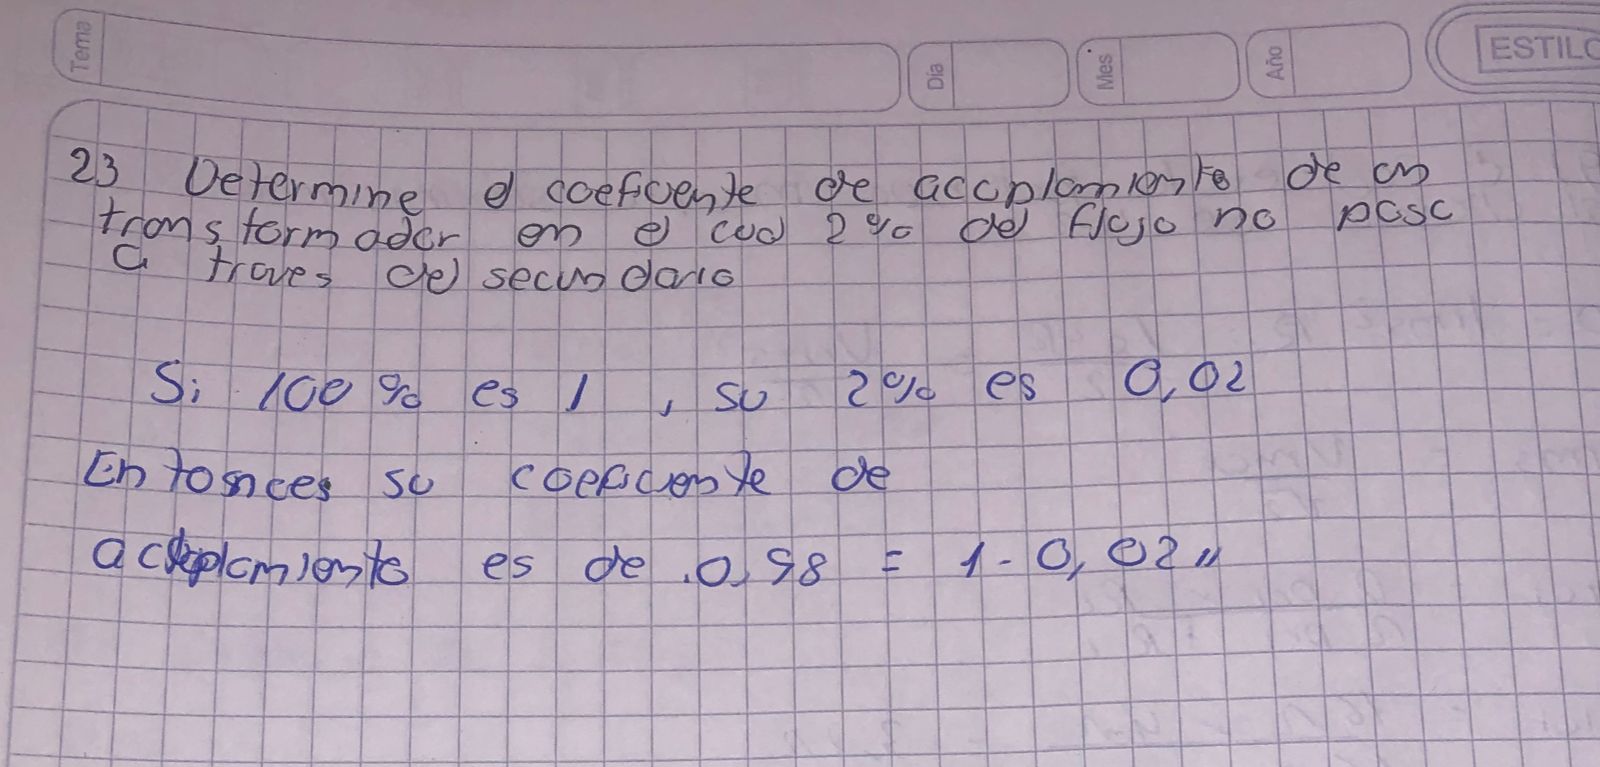 Tema
Día
Mes
Año
ESTILO
23 Determine el coeficente de acoplamiento de un
transformador en el cual 2% del flujo no pasa
a traves del secundario
Si 100% es 1, su 2% es 0,02
Entonces su coeficiente de
acoplamiento es de .0,98 = 1-0,02 "